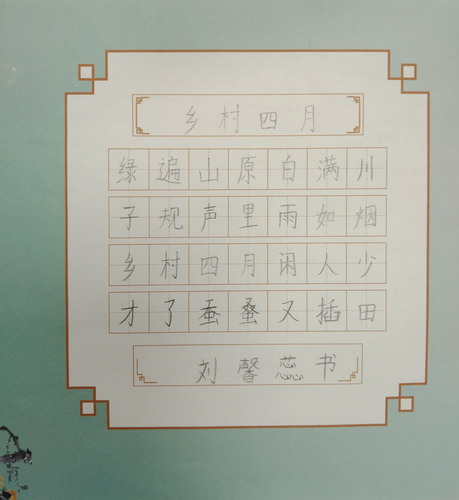 乡村四月
绿遍山原白满川
子规声里雨如烟
乡村四月闲人少
才了蚕又插田
刘馨蕊书